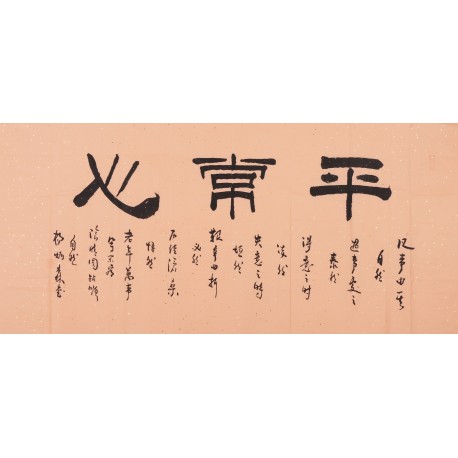 平常心
凡事由其
自然
遇事处之
泰然
得意之时
淡然
失意之时
坦然
艰辛曲折
必然
历经沧桑
悟然
老年万事
自然